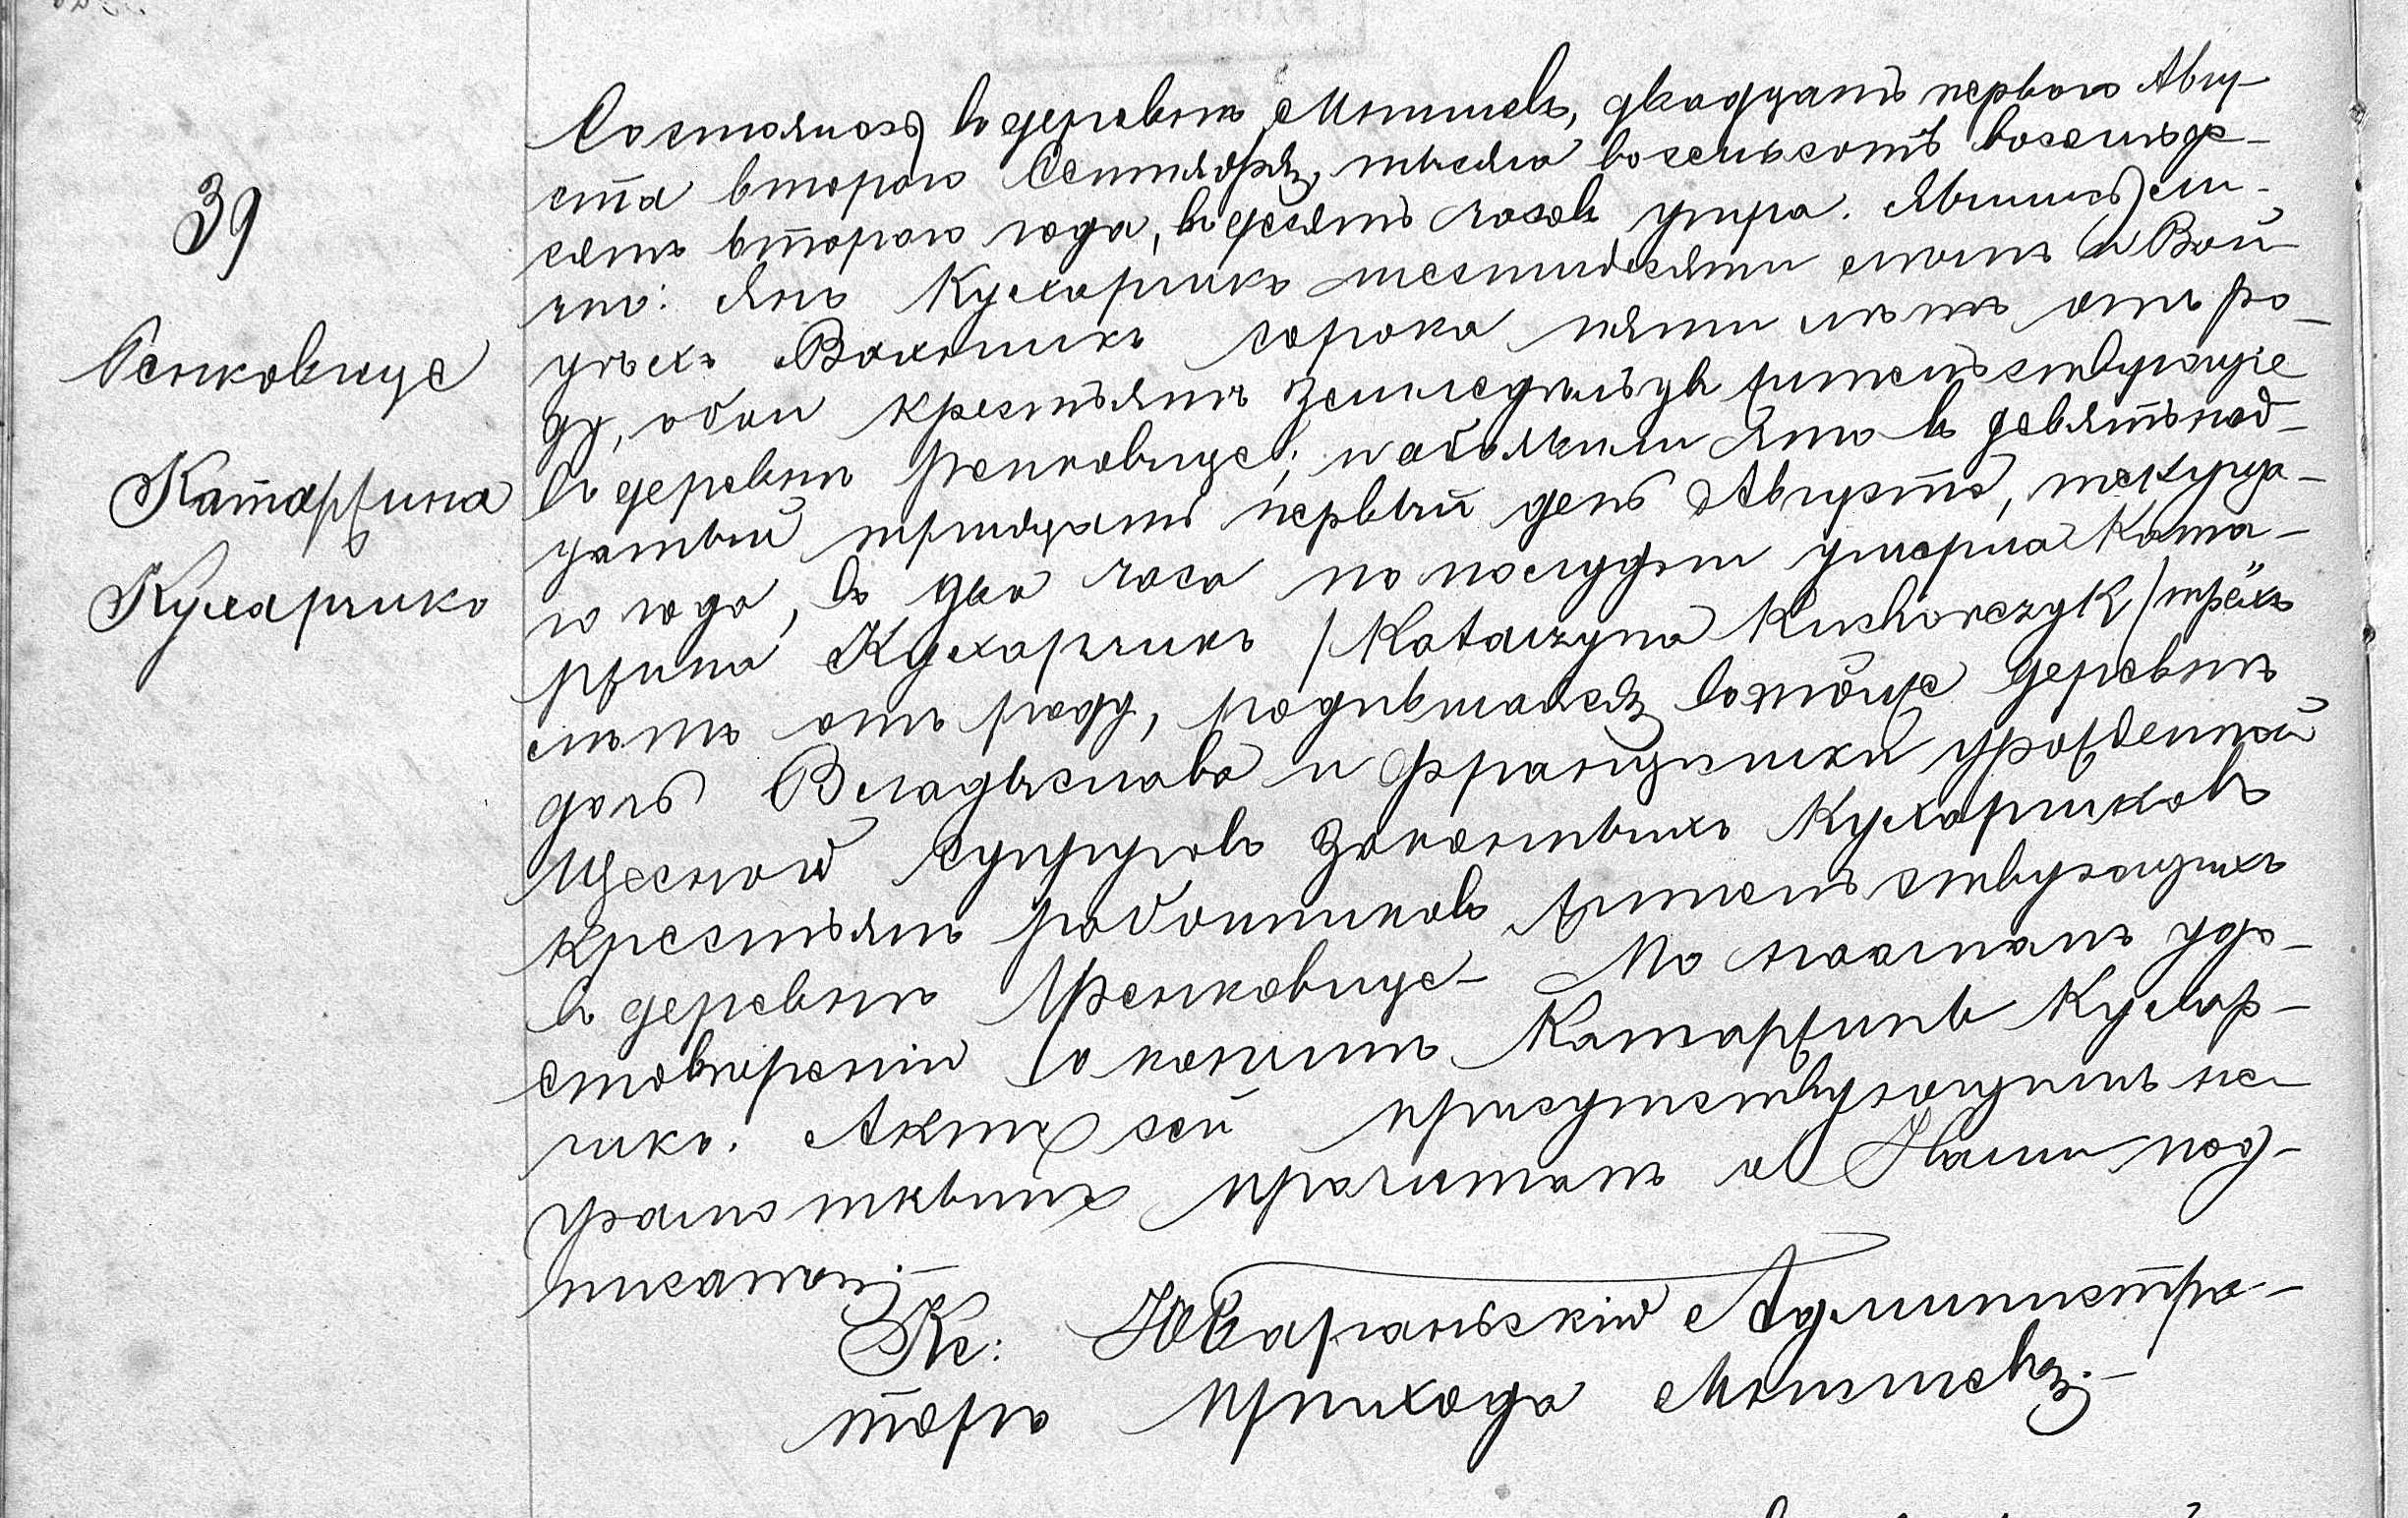 39
Пенковице
Катаржина
Кухарчикъ
Состоялось въ деревнѣ Мнишевъ, двадцать первого Авгу-
ста второго Сентября, тысяча восемьсотъ восемьде-
сятъ второго года, въ десять часовъ утра. Явились ли-
что: Янъ Кухарчикъ шестидесяти и Вой-
цѣхъ сорока пяти лѣтъ отъ ро-
ду, обои крестьяне земледѣльцы жительствующіе
въ деревнѣ и объявили что въ девятьнад-
цатый тридцать первый день Августа, текуща-
го года, въ два часа по полудни умерла Ката-
ржина Кухарчикъ /Katarzyna Kucharczyk/ трёхъ
лѣтъ отъ роду, родившаяся въ тойже деревнѣ
дочь Владыслава и Францишки урожденной
супруговъ законныхъ Кухарчиковъ
крестьянъ работниковъ жительствующихъ
въ деревнѣ По настаятъ удо-
стовѣреніи о кончинѣ Катаржины Кухар-
чикъ. Актъ сей присутствующимъ не-
грамотнымъ прочитанъ а Нами под-
писанъ.
Кс: Администра-
торъ прихода Мнишевъ.